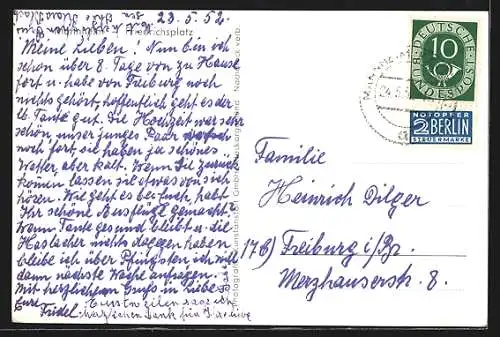 23.5.52.
Friedrichsplatz
Meine Lieben! Nun bin ich
schon über 8 Tage von zu Hause
fort u. habe von Freiburg noch
nichts gehört, hoffentlich geht es der
lb. Tante gut. Die Hochzeit war sehr
schön, unser junges Paar
noch fort sie haben ja schönes
Wetter, aber kalt. Wenn Sie zurück
kommen lassen sie etwas von sich
hören. Wie geht es bei Euch, habt
Ihr schöne Ausflüge gemacht?
Wenn Tante gesund bleibt u. die
Haslacher nichts dagegen haben
bleibe ich über Pfingsten ich will
dann nächste Woche anfragen.
Mit herzlichem Gruß in Liebe
Eure
Friedel
herzlichen Dank für
DEUTSCHE
BUNDESPOST
10
NOTOPFER
2 BERLIN
STEUERMARKE
Familie
Heinrich Dilger
17b) Freiburg i/Br.
Merzhauserstr. 8.